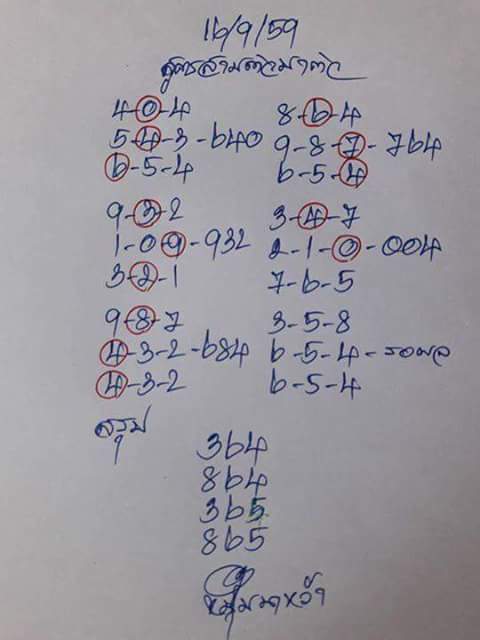 16/9/59
สูตรสามตัวมาตัว
4-0-4
5-4-3-640
6-5-4
8-6-4
9-8-7-764
6-5-4
9-3-2
1-0-9-932
3-2-1
3-4-7
2-1-0-004
7-6-5
9-8-7
4-3-2-684
4-3-2
3-5-8
6-5-4-รอผล
6-5-4
สรุป
364
864
365
865